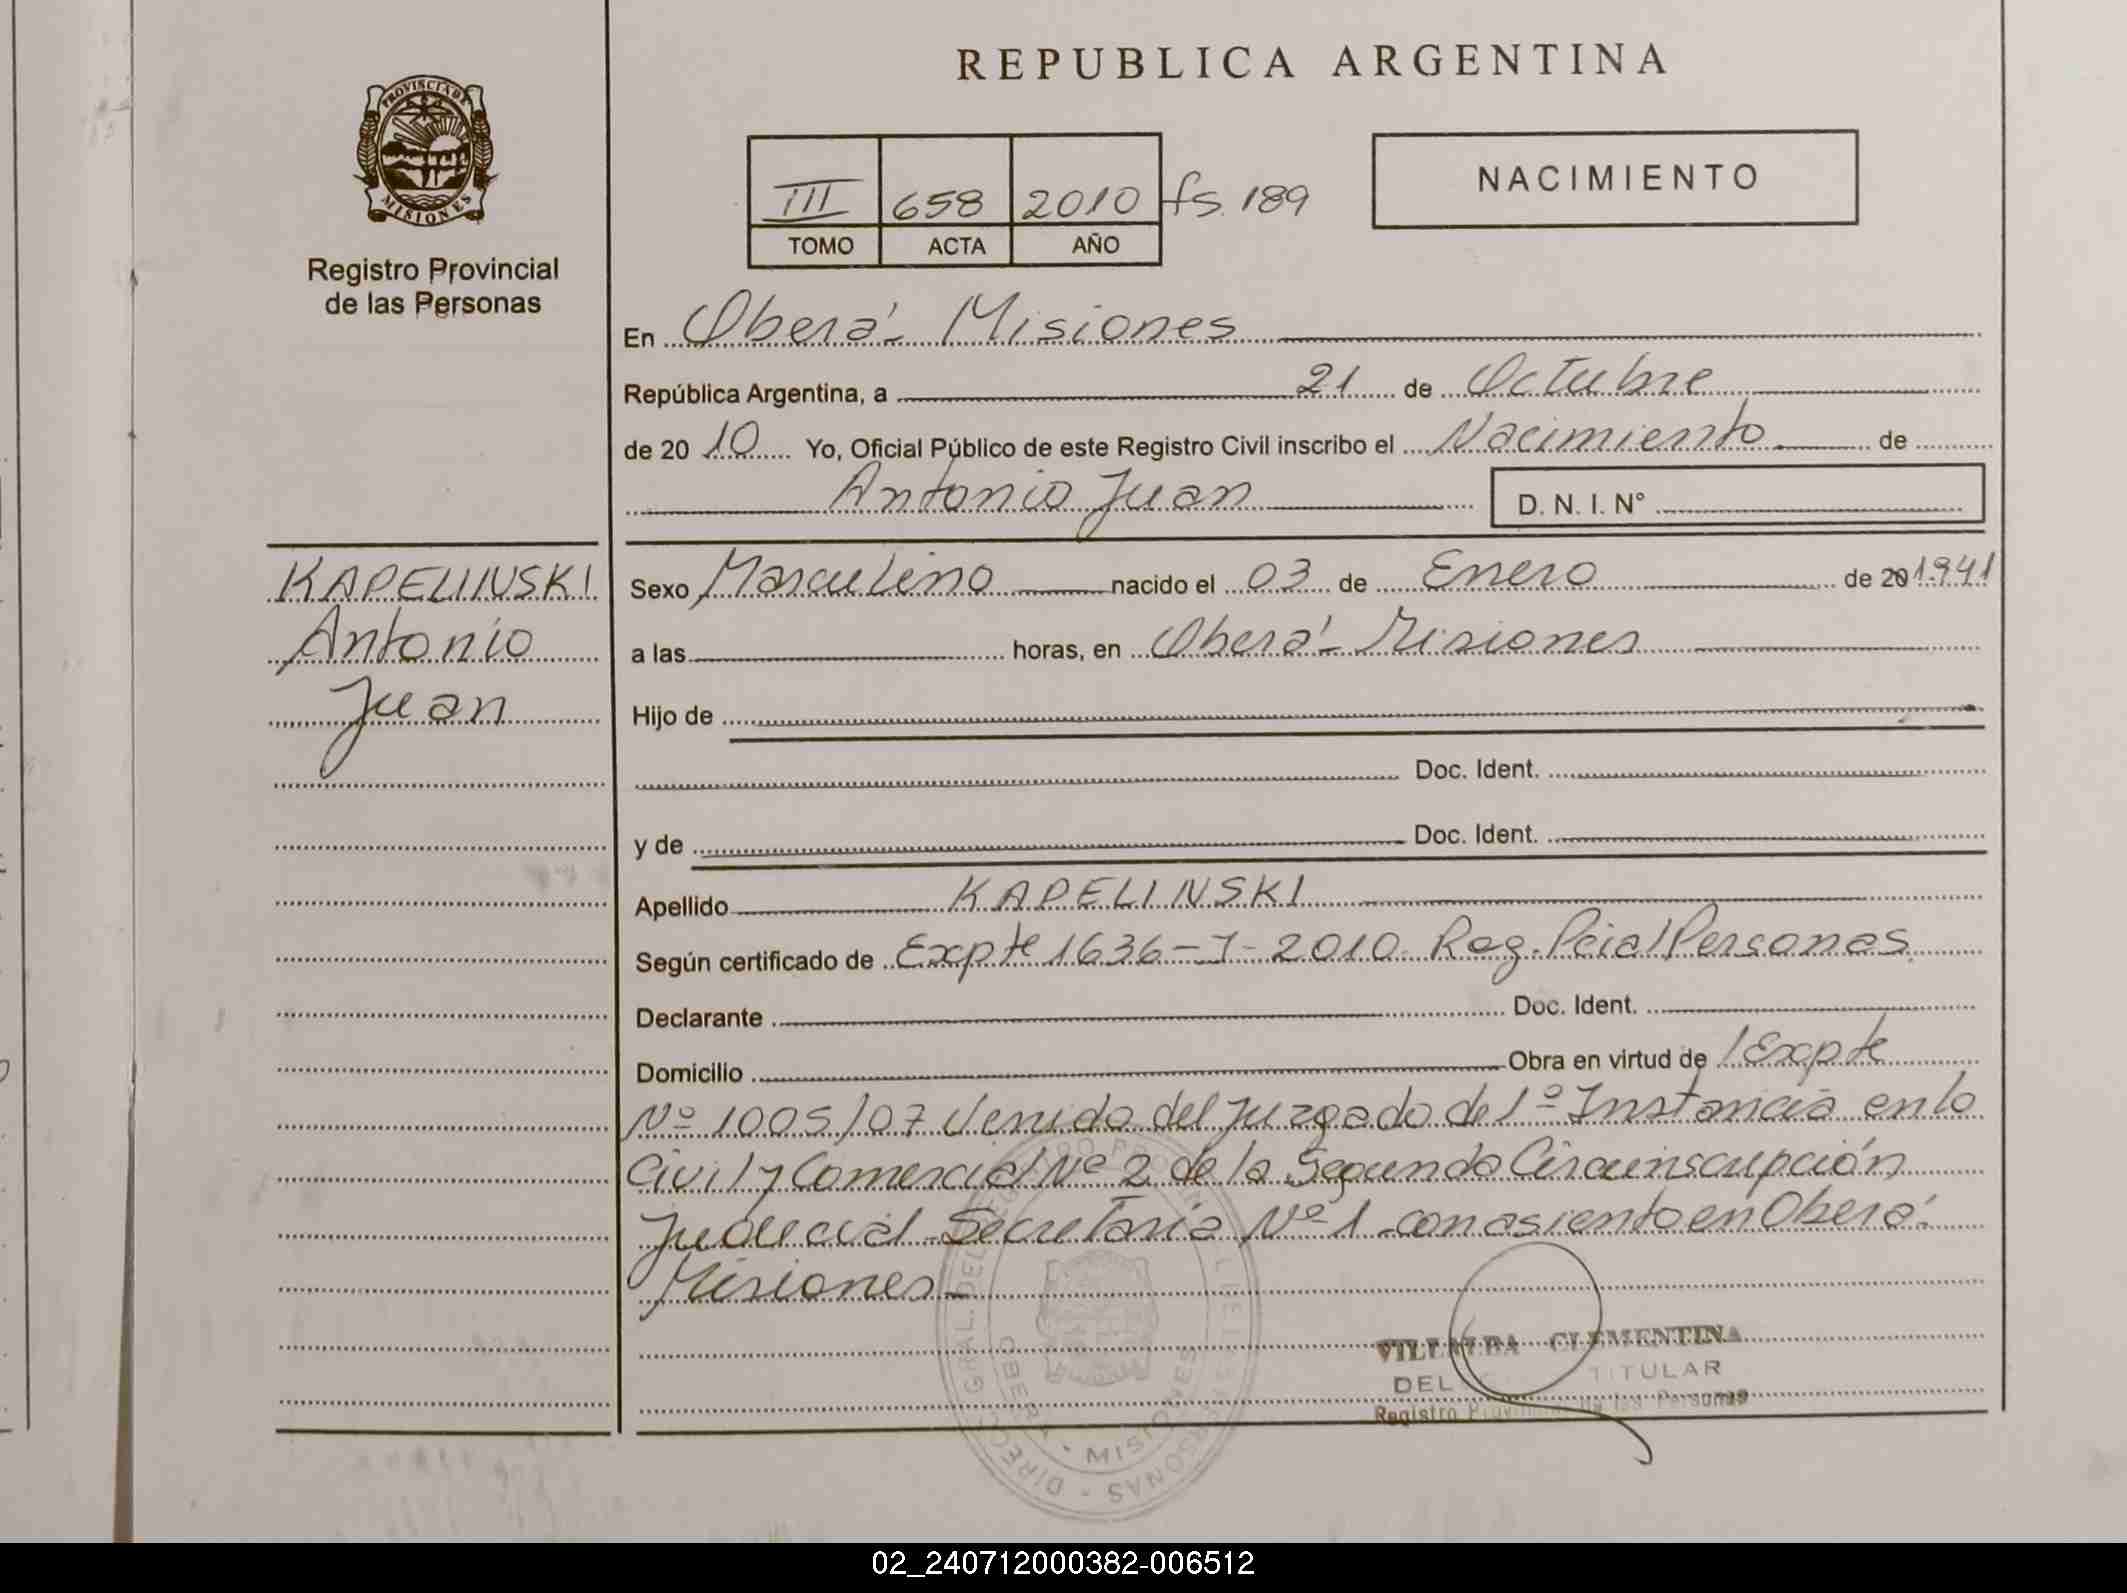 REPUBLICA ARGENTINA
PROVINCIA DE
MISIONES
Registro Provincial
de las Personas
III 658 2010 fs. 189
TOMO ACTA AÑO
NACIMIENTO
En Oberá - Misiones
República Argentina, a 21 de Octubre
de 20 10 Yo, Oficial Público de este Registro Civil inscribo el Nacimiento de
Antonio Juan D. N. I. N°
KAPELINSKI
Antonio
Juan
Sexo Masculino nacido el 03 de Enero de 20 1941
a las horas, en Oberá - Misiones
Hijo de
Doc. Ident.
y de Doc. Ident.
Apellido KAPELINSKI
Según certificado de Expte 1636-J-2010. Reg. Pcial Personas
Declarante Doc. Ident.
Domicilio Obra en virtud de / Expte
Nº 1005/07 Venido del Juzgado de 1º Instancia en lo
Civil y Comercial Nº 2 de la Segunda Circunscripción
Judicial - Secretaria Nº 1 con asiento en Oberá -
Misiones -
VILLALBA CLEMENTINA
DEL TITULAR
Registro Provincial de las Personas
OBERA - MISIONES
02_240712000382-006512